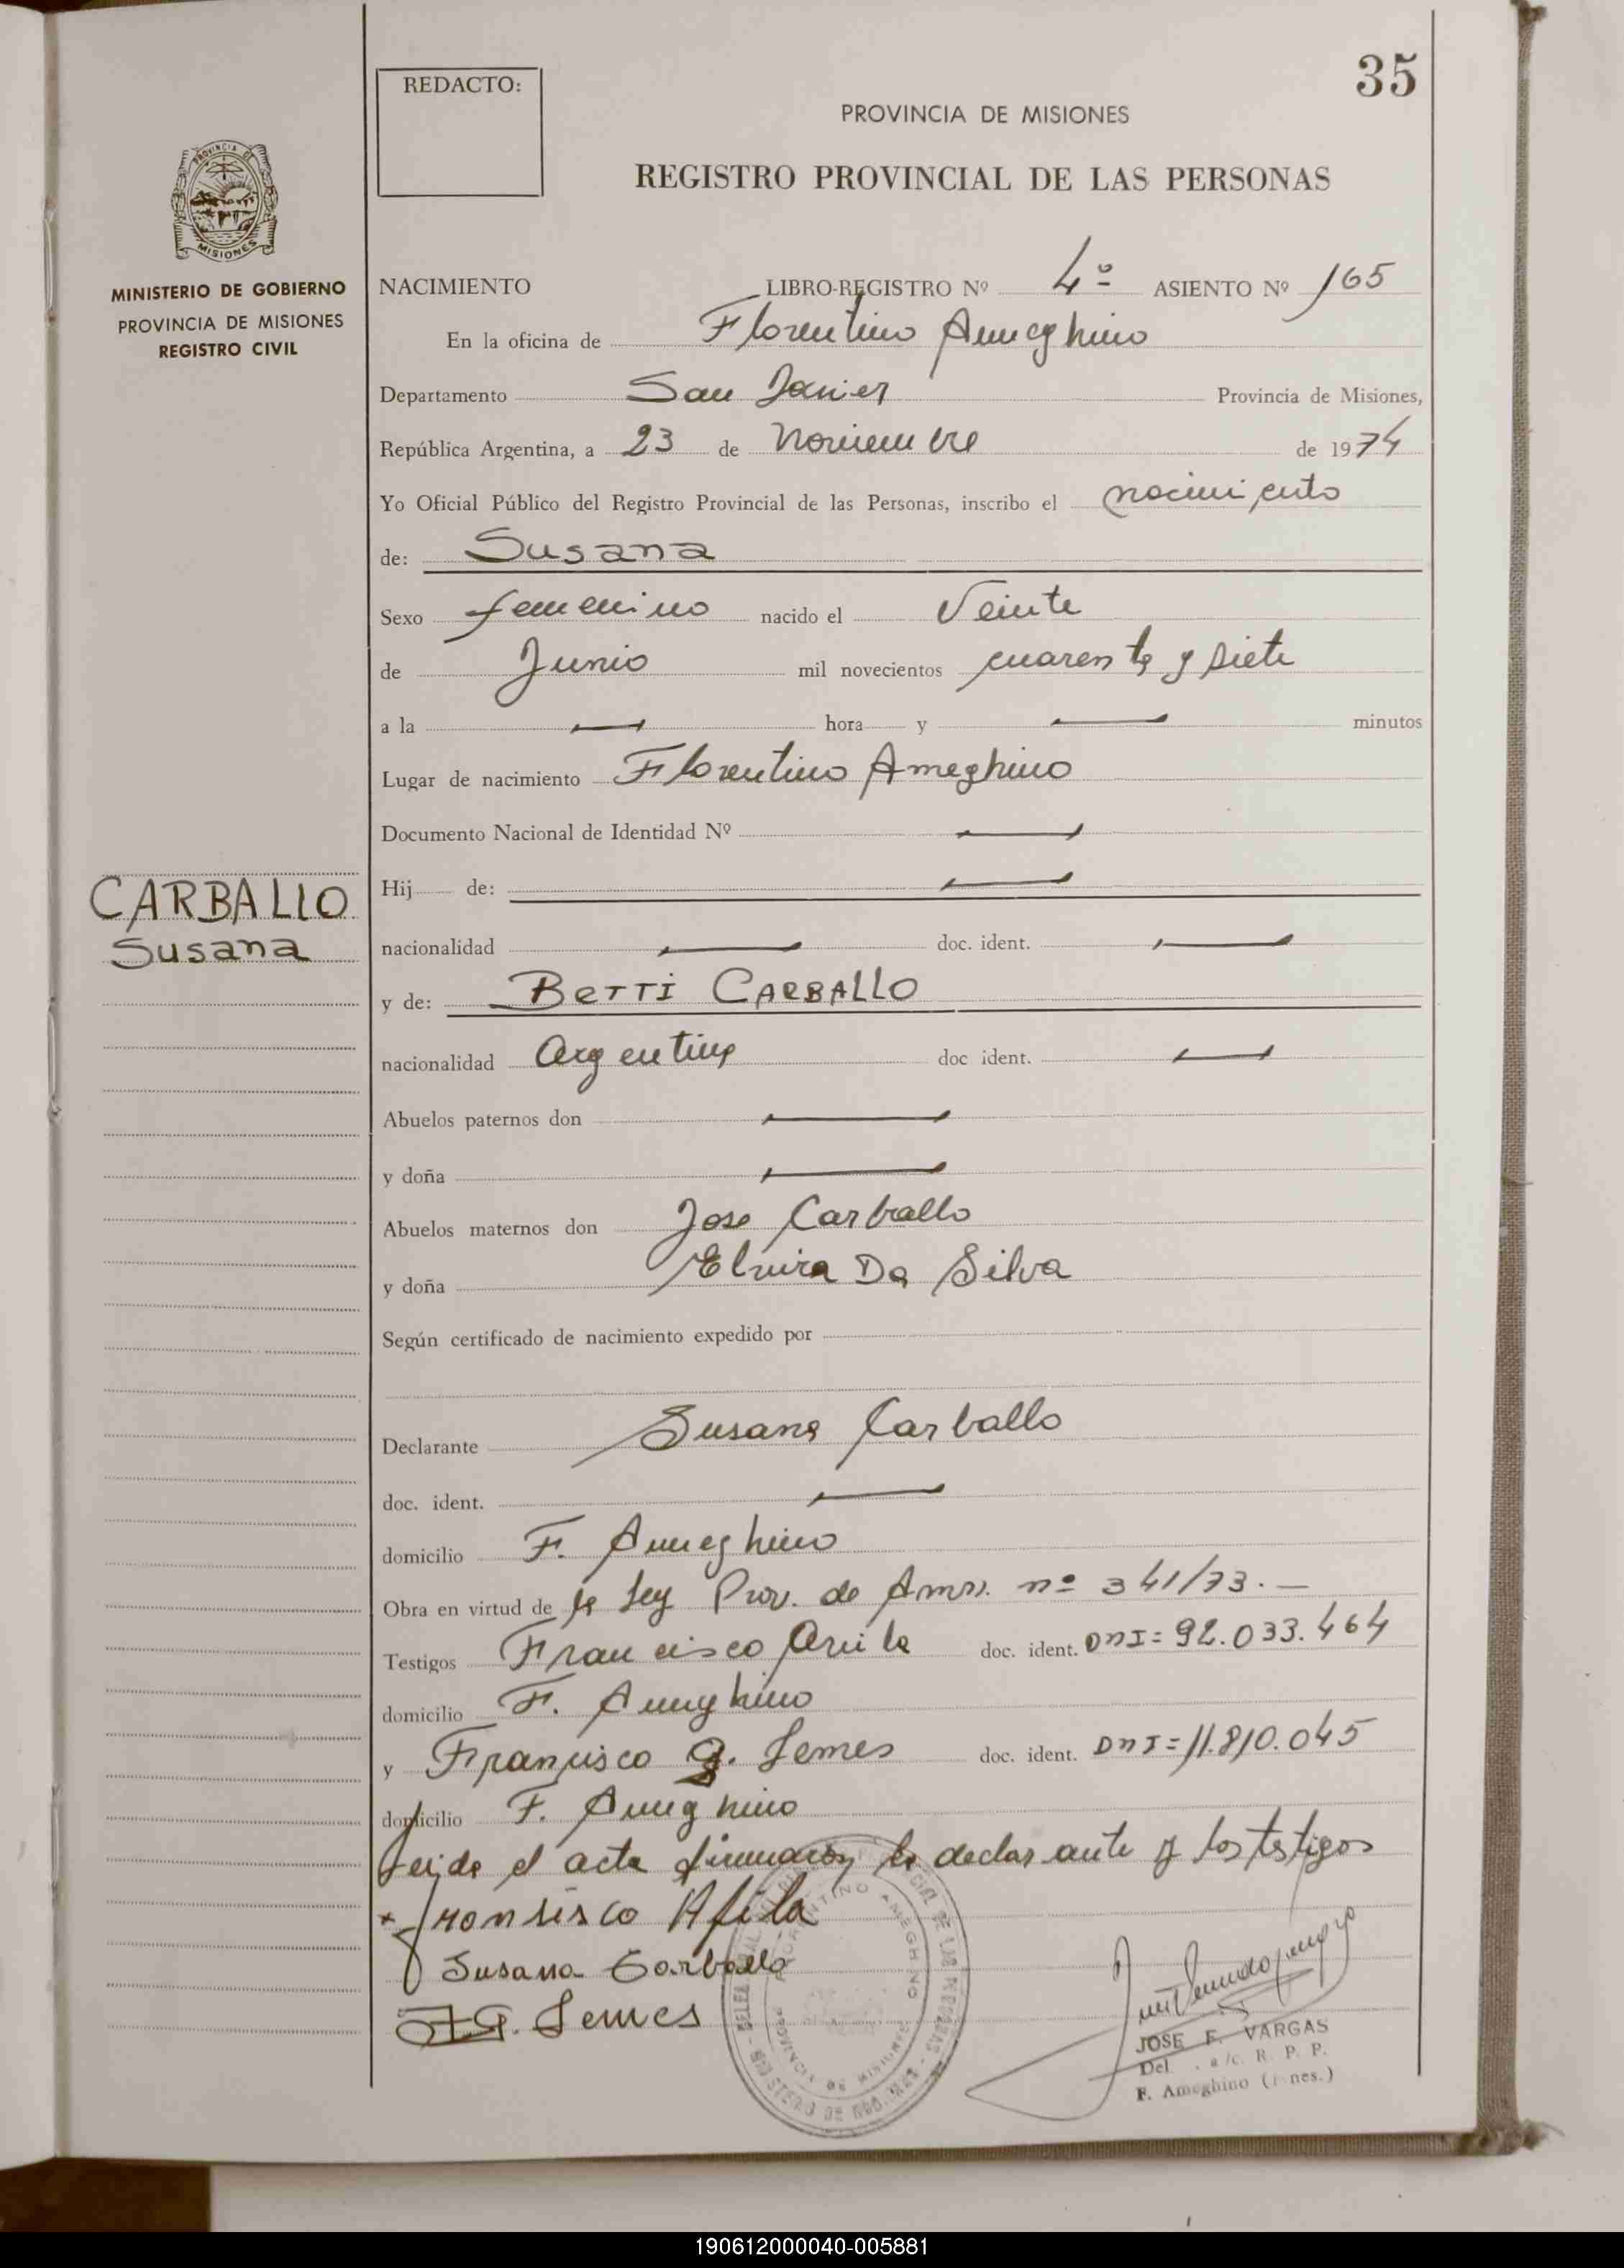 35
REDACTO:
PROVINCIA DE MISIONES
REGISTRO PROVINCIAL DE LAS PERSONAS
PROVINCIA DE
MISIONES
MINISTERIO DE GOBIERNO
PROVINCIA DE MISIONES
REGISTRO CIVIL
NACIMIENTO LIBRO-REGISTRO Nº 4º ASIENTO Nº 165
En la oficina de Florentino Ameghino
Departamento San Javier Provincia de Misiones,
República Argentina, a 23 de Noviembre de 1974
Yo Oficial Público del Registro Provincial de las Personas, inscribo el nacimiento
de: Susana
Sexo femenino nacido el Veinte
de Junio mil novecientos cuarenta y siete
a la — hora y — minutos
Lugar de nacimiento Florentino Ameghino
Documento Nacional de Identidad Nº —
CARBALLO
Susana
Hij de: —
nacionalidad — doc. ident. —
y de: BETTI CARBALLO
nacionalidad Argentina doc ident. —
Abuelos paternos don —
y doña —
Abuelos maternos don Jose Carballo
y doña Elvira Da Silva
Según certificado de nacimiento expedido por
Declarante Susana Carballo
doc. ident. —
domicilio F. Ameghino
Obra en virtud de la Ley Prov. de Amn. nº 341/73.—
Testigos Francisco Avila doc. ident. DNI=92.033.464
domicilio F. Ameghino
y Francisco G. Lemes doc. ident. DNI=11.810.045
domicilio F. Ameghino
Leida el acta firmaron la declarante y los testigos
x Fronsisco Afila
Susana Carballo
F.G. Lemes
FLORENTINO AMEGHINO
PROVINCIA DE MISIONES
JOSE F. VARGAS
Del. a/c. R. P. P.
F. Ameghino
190612000040-005881